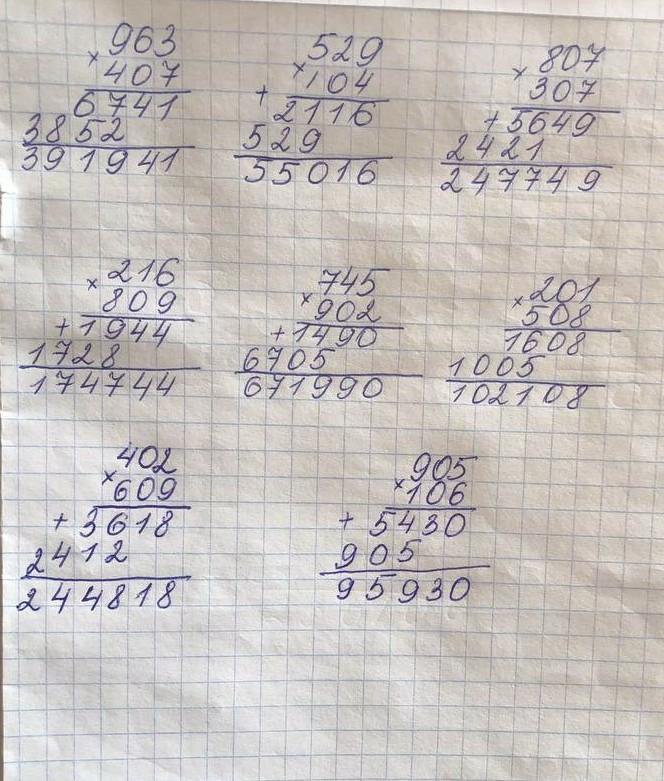 963
× 407
6741
3852
391941
529
× 104
+ 2116
529
55016
807
× 307
+ 5649
2421
247749
216
× 809
+ 1944
1728
174744
745
× 902
+ 1490
6705
671990
201
× 508
1608
1005
102108
402
× 609
+ 3618
2412
244818
905
× 106
+ 5430
905
95930